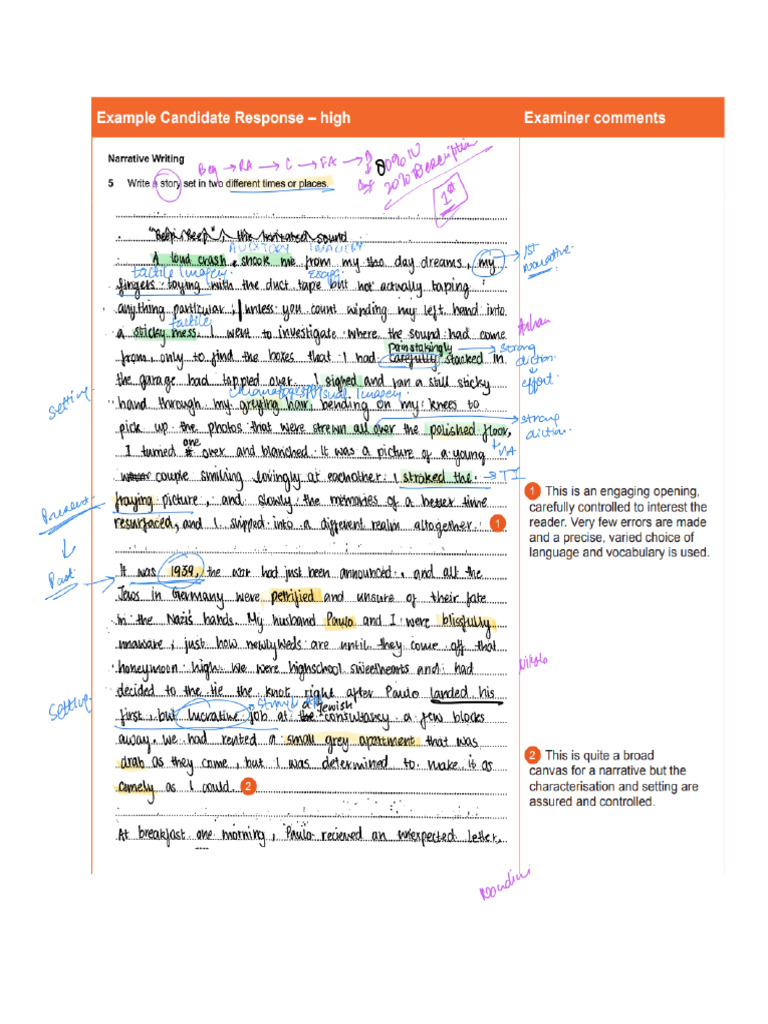 Example Candidate Response – high
Examiner comments
Narrative Writing
Beg → RA → C → FA →
80% N
20% Description
5 Write a story set in two different times or places.
1st
"Beep, Beep", the horrated sound
AUDITORY IMAGERY
1st
Narrative
A loud crash shook me from my tho day dreams, my
tactile Imagery
fingers toying with the duct tape but not actually taping
anything particular, unless you count winding my left hand into
tactile
a sticky mess. I went to investigate where the sound had come
Painstakingly
strong
diction
effort
from, only to find the boxes that I had carefully stacked in
the garage had toppled over. I signed and ran a still sticky
Setting
Visual Imagery
hand through my greying hair, bending on my knees to
pick up the photos that were strewn all over the polished floor,
strong
diction
VA
one
I turned it over and blanched. It was a picture of a young
couple smiling lovingly at eachother. I stroked the
TI
Present
fraying picture, and slowly the memories of a better time
resurfaced, and I slipped into a different realm altogether. 1
1 This is an engaging opening,
carefully controlled to interest the
reader. Very few errors are made
and a precise, varied choice of
language and vocabulary is used.
Past
It was 1939, the war had just been announced, and all the
Jews in Germany were petrified and unsure of their fate
in the Nazi's hands. My husband Paulo and I were blissfully
unaware, just how newlyweds are until they come off that
honeymoon high. We were highschool sweethearts and had
decided to the tie the knot right after Paulo landed his
Setting
Jewish
first, but lucrative job at the consultancy a few blocks
away. We had rented a small grey apartment that was
drab as they come, but I was determined to make it as
comely as I could. 2
2 This is quite a broad
canvas for a narrative but the
characterisation and setting are
assured and controlled.
At breakfast one morning, Paulo recieved an unexpected letter.
Nandini